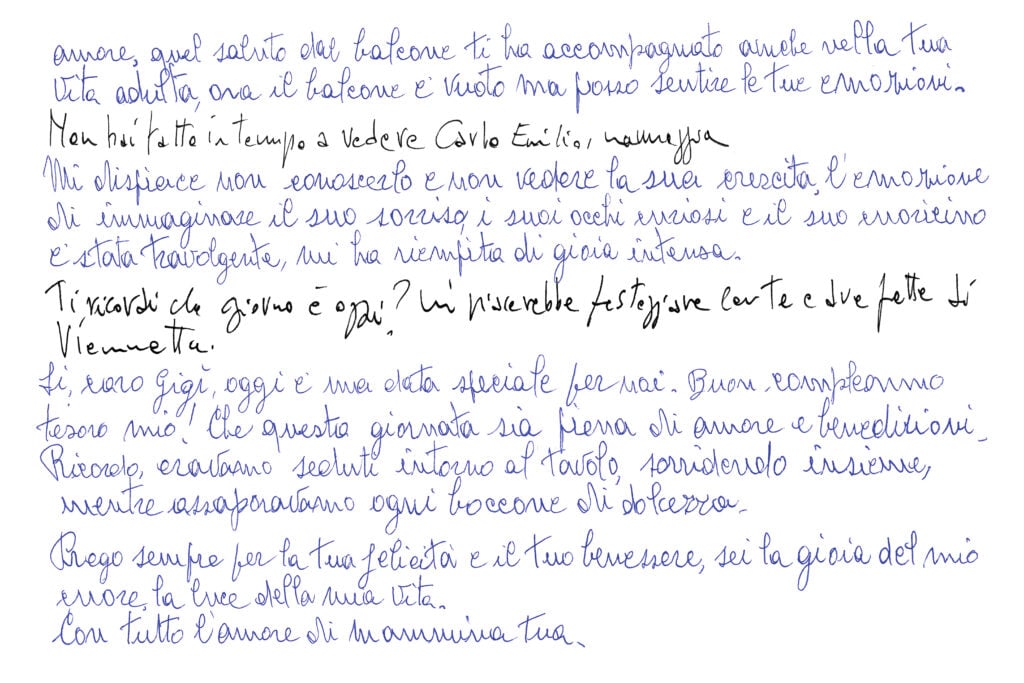 amore, quel saluto dal balcone ti ha accompagnato anche nella tua
vita adulta, ora il balcone è vuoto ma posso sentire le tue emozioni.
Non hai fatto in tempo a vedere Carlo Emilio,
Mi dispiace non conoscerlo e non vedere la sua crescita, l'emozione
di immaginare il suo sorriso, i suoi occhi curiosi e il suo cuoricino
è stata travolgente, mi ha riempita di gioia intensa.
Ti ricordi che giorno è oggi? Mi piacerebbe festeggiare con te e due fette di
Viennetta.
Sì, caro Gigi, oggi è una data speciale per noi. Buon compleanno
tesoro mio! Che questa giornata sia piena di amore e benedizioni.
Ricordo, eravamo seduti intorno al tavolo, sorridendo insieme,
mentre assaporavamo ogni boccone di dolcezza.
Prego sempre per la tua felicità e il tuo benessere, sei la gioia del mio
cuore, la luce della mia vita.
Con tutto l'amore di mammina tua.